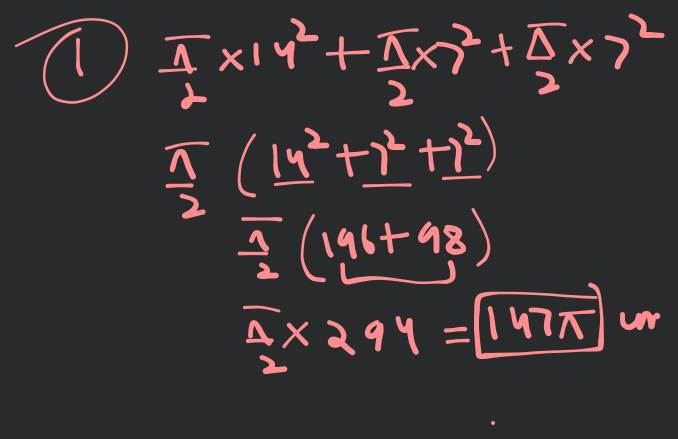 ① π/2 × 14² + π/2 × 7² + π/2 × 7²
π/2 (14² + 7² + 7²)
π/2 (196 + 98)
π/2 × 294 = 147π